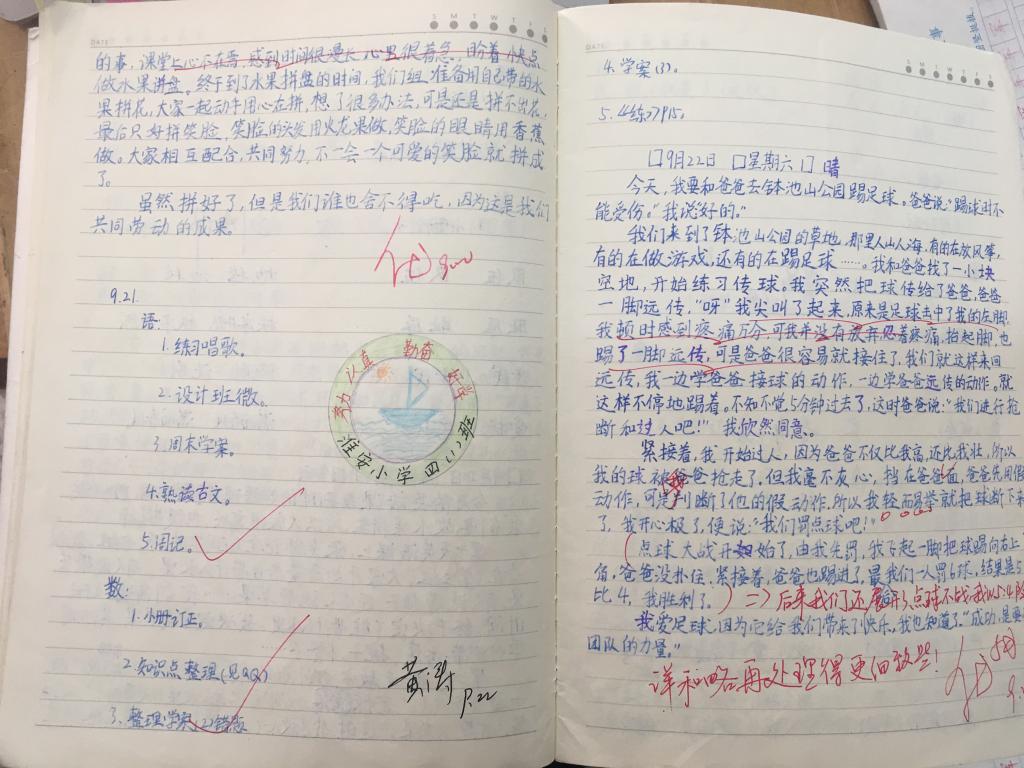 的事,课堂上心不在焉,感到时间很漫长,心里很着急,盼着快点
做水果拼盘。终于到了水果拼盘的时间,我们组准备用自己带的水
果拼花,大家一起动手用心在拼,想了很多办法,可是还是拼不出花,
最后只好拼笑脸,笑脸的头发用火龙果做,笑脸的眼睛用香蕉
做。大家相互配合,共同努力,不一会一个可爱的笑脸就拼成
了。
虽然拼好了,但是我们谁也舍不得吃,因为这是我们
共同劳动的成果。
优
9.21.
语:
1.练习唱歌。
2.设计班微。
3.周末学案。
4.熟读古文。
5.周记。
努力 认真 勤奋 好学
淮安小学四(1)班
数:
1.小册订正。
2.知识点整理(见QQ)
3.整理学案(2)错题
9.22
4.学案(3)。
5.练习P15。
口9月22日 口星期六 口晴
今天,我要和爸爸去钵池山公园踢足球。爸爸说:“踢球时不
能受伤。”我说:“好的。”
我们来到了钵池山公园的草地,那里人山人海,有的在放风筝,
有的在做游戏,还有的在踢足球……。我和爸爸找了一小块
空地,开始练习传球。我突然把球传给了爸爸,爸爸
一脚远传,“呀”我尖叫了起来,原来是足球击中了我的左脚。
我顿时感到疼痛万分,可我并没有放弃,忍着疼痛,抬起脚,也
踢了一脚远传,可是爸爸很容易就接住了,我们就这样来回
远传,我一边学爸爸接球的动作,一边学爸爸远传的动作。就
这样不停地踢着。不知不觉5分钟过去了,这时爸爸说:“我们进行抢
断和过人吧!”我欣然同意。
紧接着,我开始过人,因为爸爸不仅比我高,还比我壮,所以
我的球被爸爸抢走了,但我毫不灰心,挡在爸爸面,爸爸先用假
动作,可我判断了他的假动作,所以我轻而易举就把球断下来
了,我开心极了,便说:“我们罚点球吧!”
点球大战开始了,由我先罚,我飞起一脚把球踢向右上
角,爸爸没扑住,紧接着,爸爸也踢进了,最我们一人罚6球,结果是5
比4,我胜利了。
后来我们还展开了点球大战,我以5:4胜
我爱足球,因为它给我们带来了快乐,我也知道了“成功,是要
团队的力量。”
详和略再处理得更好些!
优